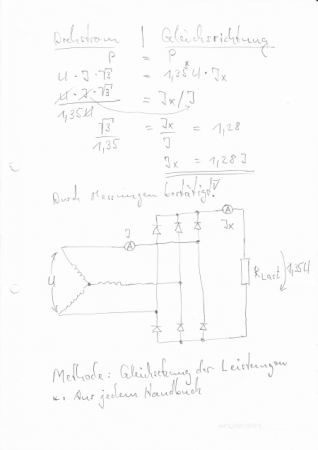 Drehstrom | Gleichrichtung
P = P
U · I · √3 = 1,35* U · Ix
U · I · √3 / 1,35 U = Ix / I
√3 / 1,35 = Ix / I = 1,28
Ix = 1,28 I
Durch Messungen bestätigt!
I
Ix
U
RLast
1,35U
Methode: Gleichsetzung der Leistungen
*: Aus jedem Handbuch